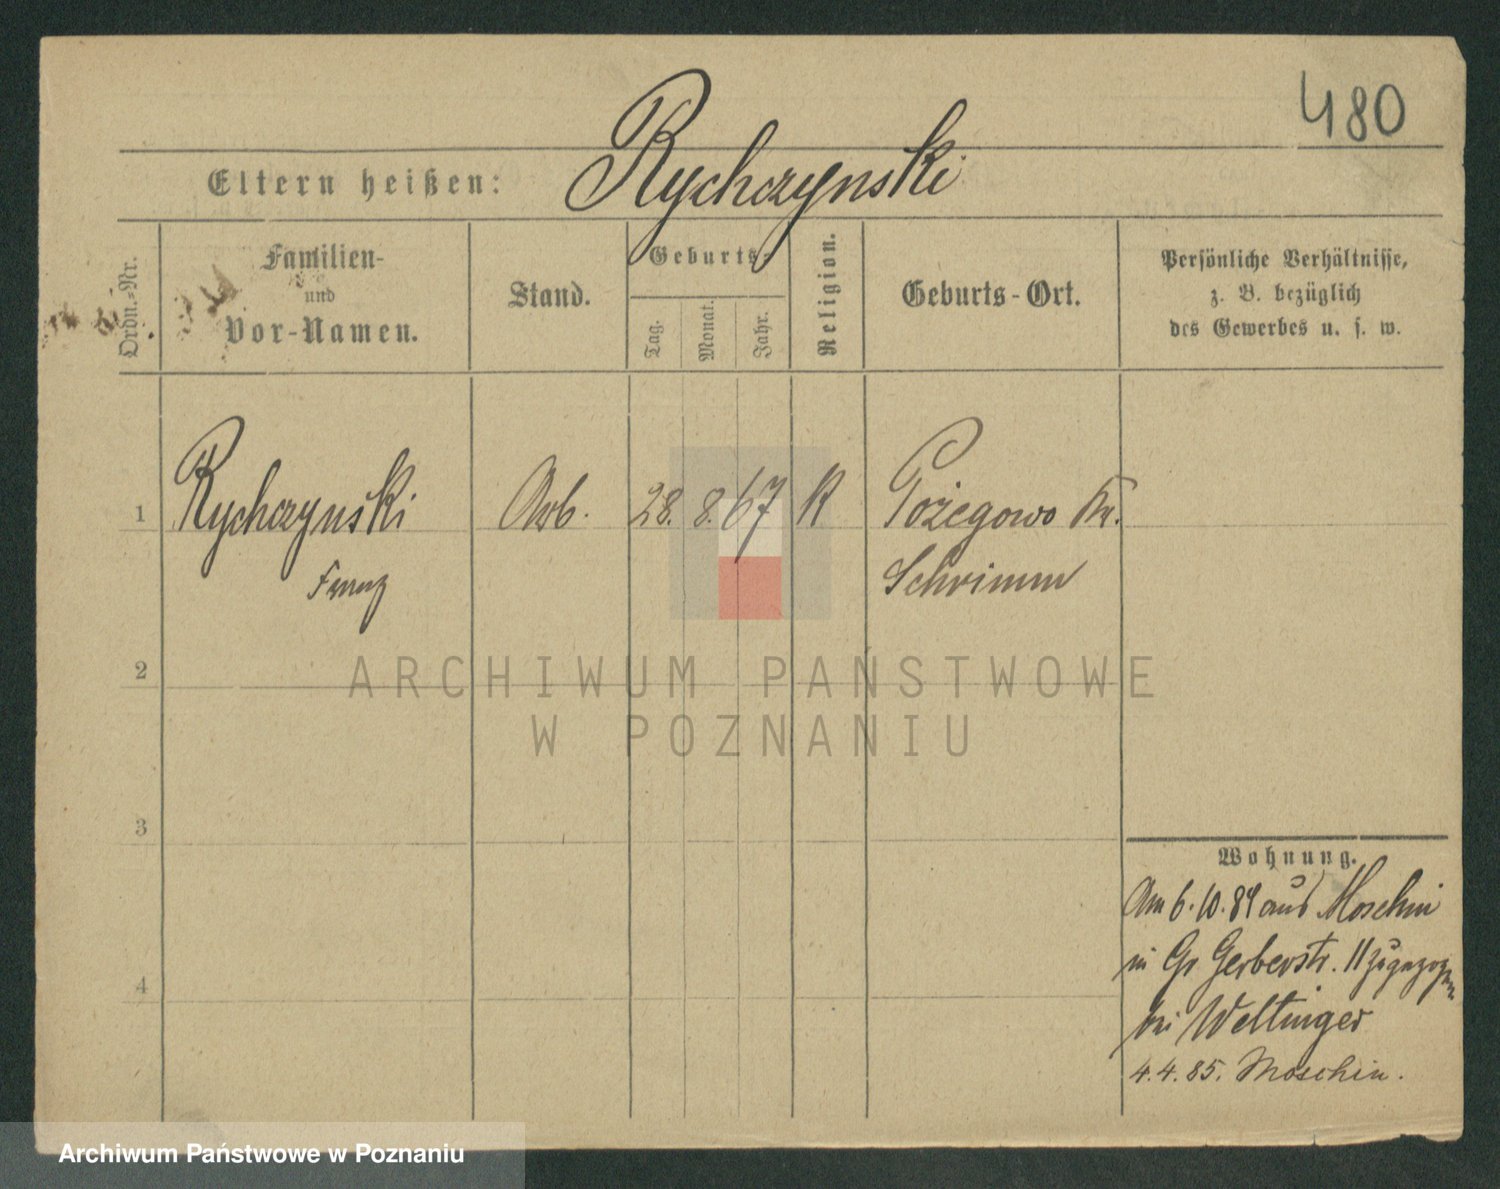 480
Eltern heißen: Rychczynski
Ordn.-Nr.
Familien-
und
Vor-Namen.
Stand.
Geburts-
Tag.
Monat.
Jahr.
Religion.
Geburts-Ort.
Persönliche Verhältnisse,
z. B. bezüglich
des Gewerbes u. s. w.
1 Rychczynski Arb. 28. 8. 67 K Pożegowo Kr.
Franz Schrimm
2
3
4
Wohnung.
Am 6.10.84 aus Moschin
in Gr Gerberstr. 11 zugezogen
bei Weltinger
4.4.85. Moschin.
ARCHIWUM PAŃSTWOWE
W POZNANIU
Archiwum Państwowe w Poznaniu